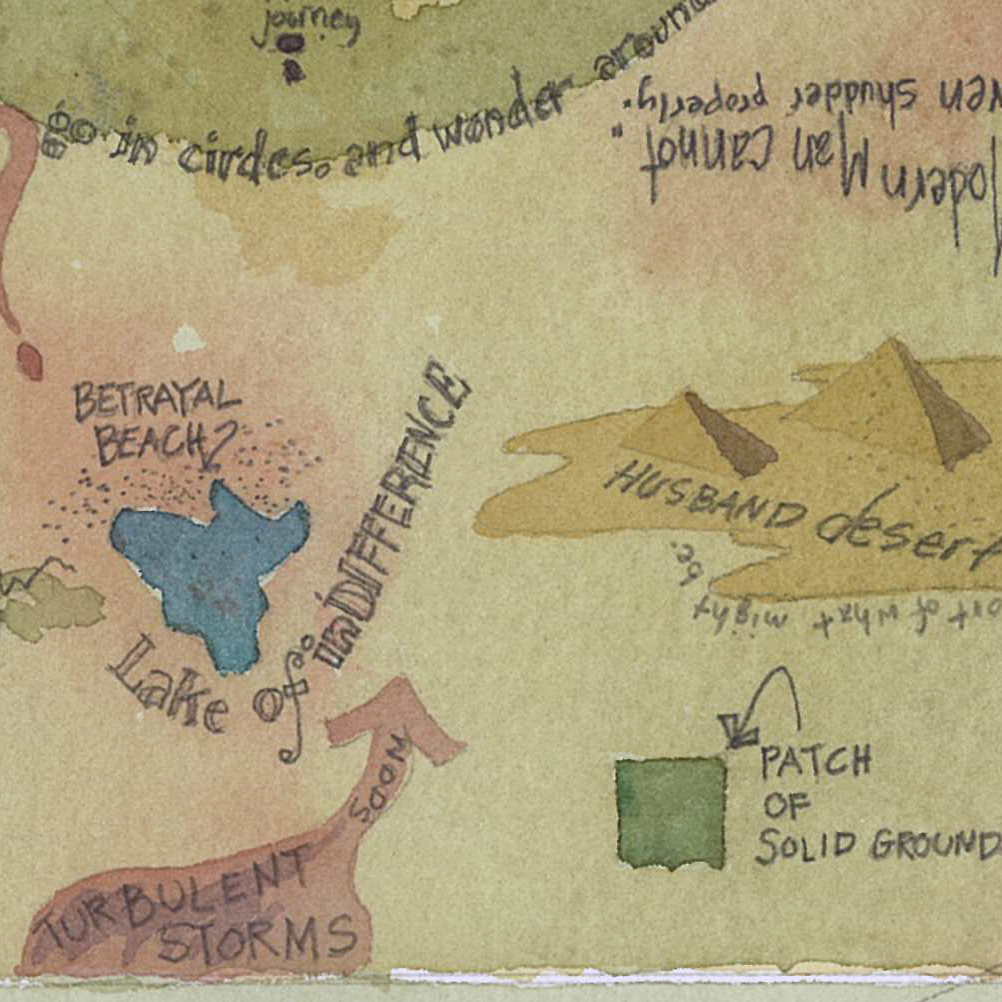 journey
go in circles. and wonder around
Modern Man cannot
shudder properly."
BETRAYAL
BEACH
Lake of inDIFFERENCE
HUSBAND desert
of what might
be.
PATCH
OF
SOLID GROUND
TURBULENT
STORMS